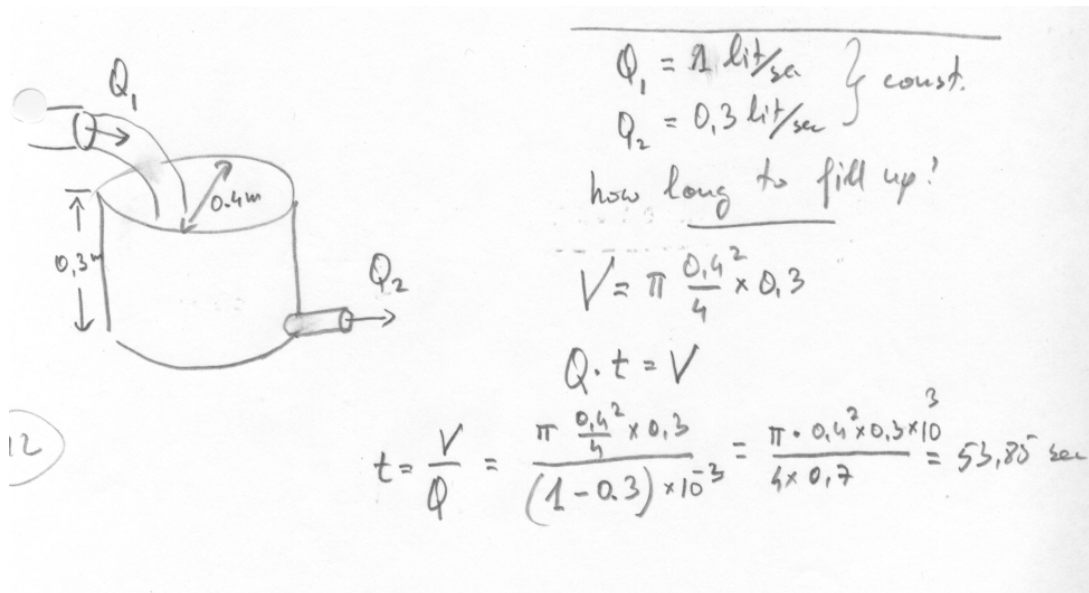 Q₁
0.4m
0,3m
Q₂
12
Q₁ = 1 lit/sec } const.
Q₂ = 0,3 lit/sec
how long to fill up?
V = π 0,4²/4 × 0,3
Q · t = V
t = V/Q = π 0,4²/4 × 0,3 / (1 - 0.3) × 10⁻³ = π · 0,4² × 0,3 × 10³ / 4 × 0,7 = 53,85 sec